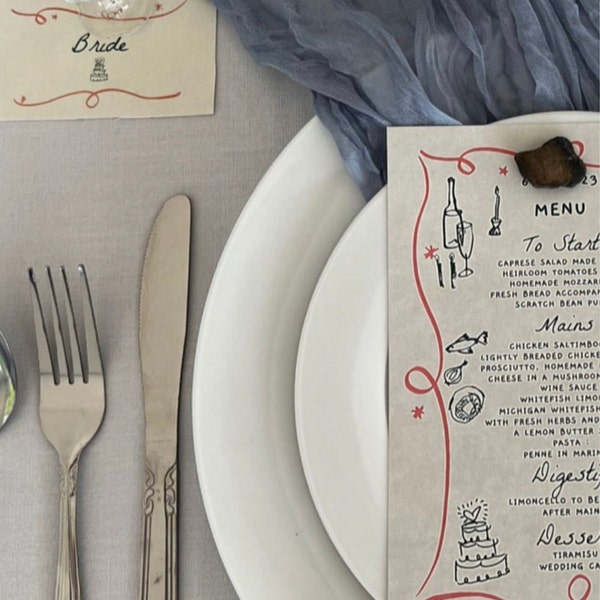 Bride
23
MENU
To Start
CAPRESE SALAD MADE
HEIRLOOM TOMATOES
HOMEMADE MOZZAR
FRESH BREAD ACCOMPAN
SCRATCH BEAN PU
Mains
CHICKEN SALTIMBOC
LIGHTLY BREADED CHICKE
PROSCIUTTO, HOMEMADE
CHEESE IN A MUSHROOM
WINE SAUCE
WHITEFISH LIMO
MICHIGAN WHITEFISH
WITH FRESH HERBS AND
A LEMON BUTTER
PASTA :
PENNE IN MARIN
Digestif
LIMONCELLO TO BE
AFTER MAIN
Desser
TIRAMISU
WEDDING CA